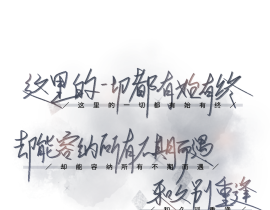 这里的一切都有始有终
这里的一切都有始有终
却能容纳所有不期而遇
却能容纳所有不期而遇
和久别重逢
和久别重逢